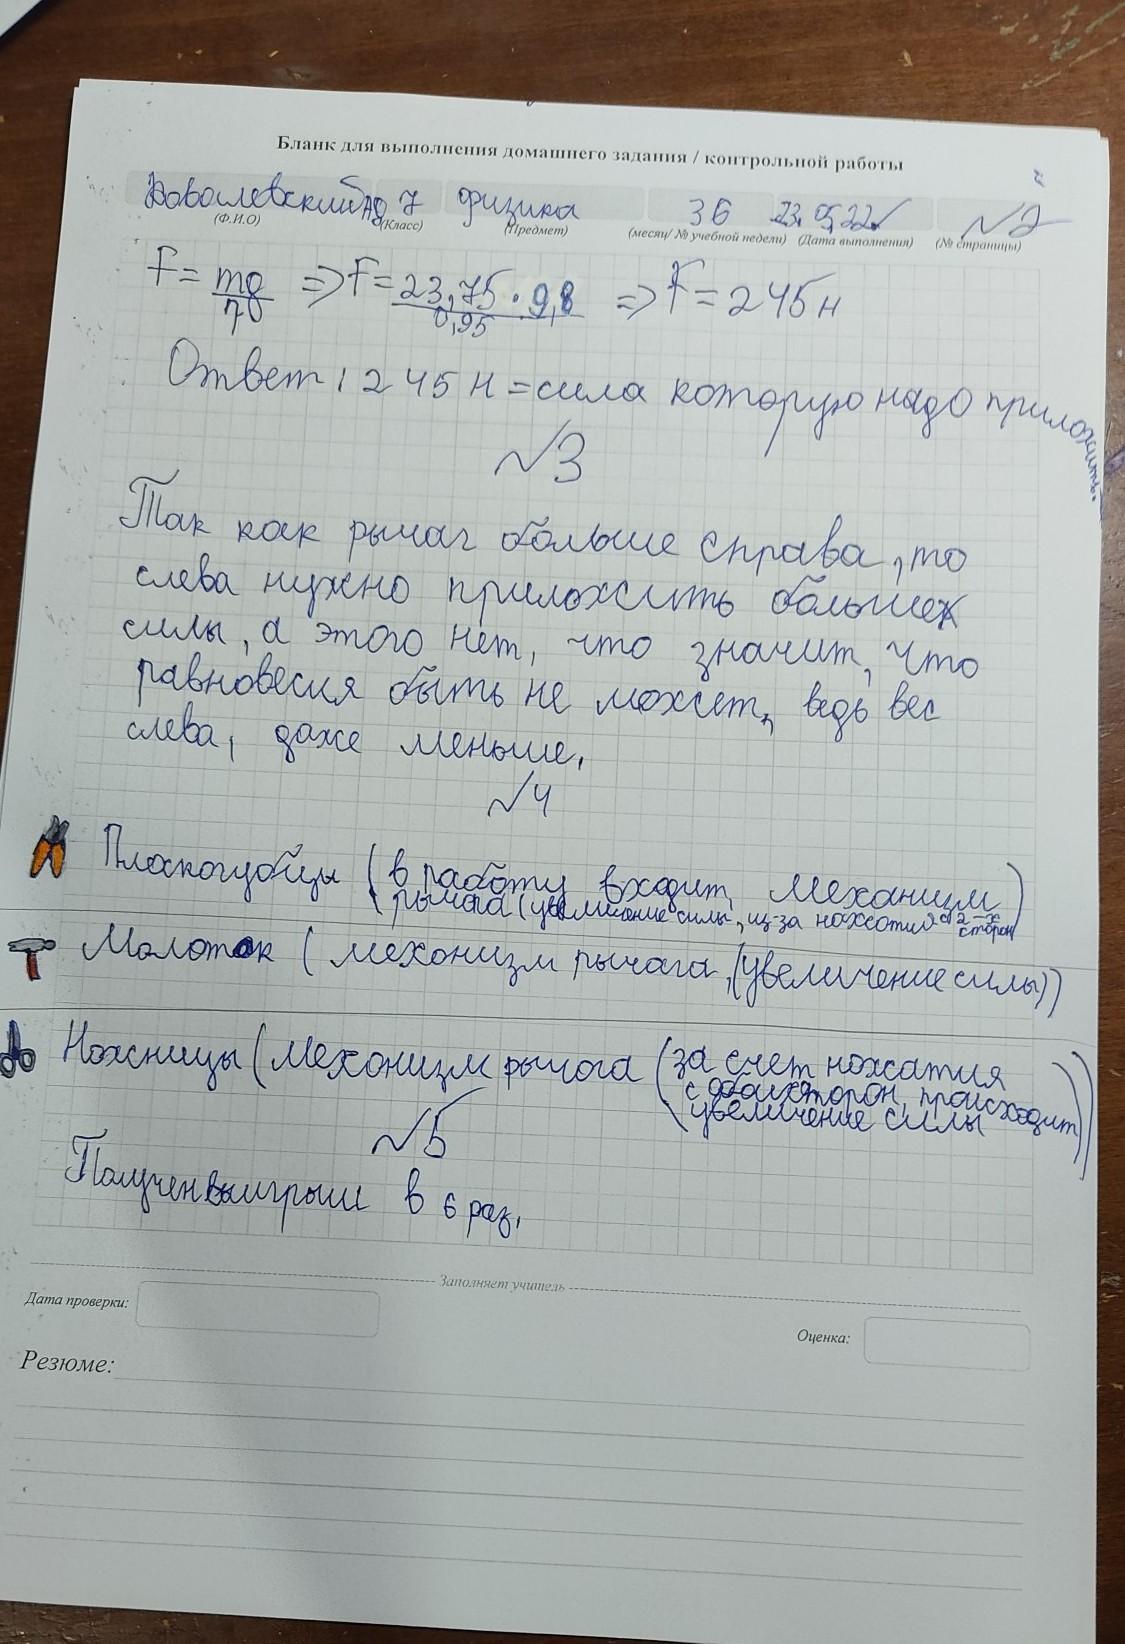 Бланк для выполнения домашнего задания / контрольной работы
Ковалевский 7 физика 36 23.05.22 №2
(Ф.И.О) (Класс) (Предмет) (месяц/ № учебной недели) (Дата выполнения) (№ страницы)
F = mg/η => F = 23,75 · 9,8/0,95 => F = 245 н
Ответ: 245 н = сила которую надо приложить.
№3
Так как рычаг больше справа, то
слева нужно приложить больше
силы, а этого нет, что значит, что
равновесия быть не может, ведь вес
слева, даже меньше.
№4
Плоскогубцы (в работу входит механизм
рычага (увеличение силы, из-за нажатия с 2-х сторон)
Молоток (механизм рычага, (увеличение силы))
Ножницы (механизм рычага (за счет нажатия
с обоих сторон, происходит
увеличение силы))
№5
Получен выигрыш в 6 раз.
Заполняет учитель
Дата проверки:
Оценка:
Резюме: